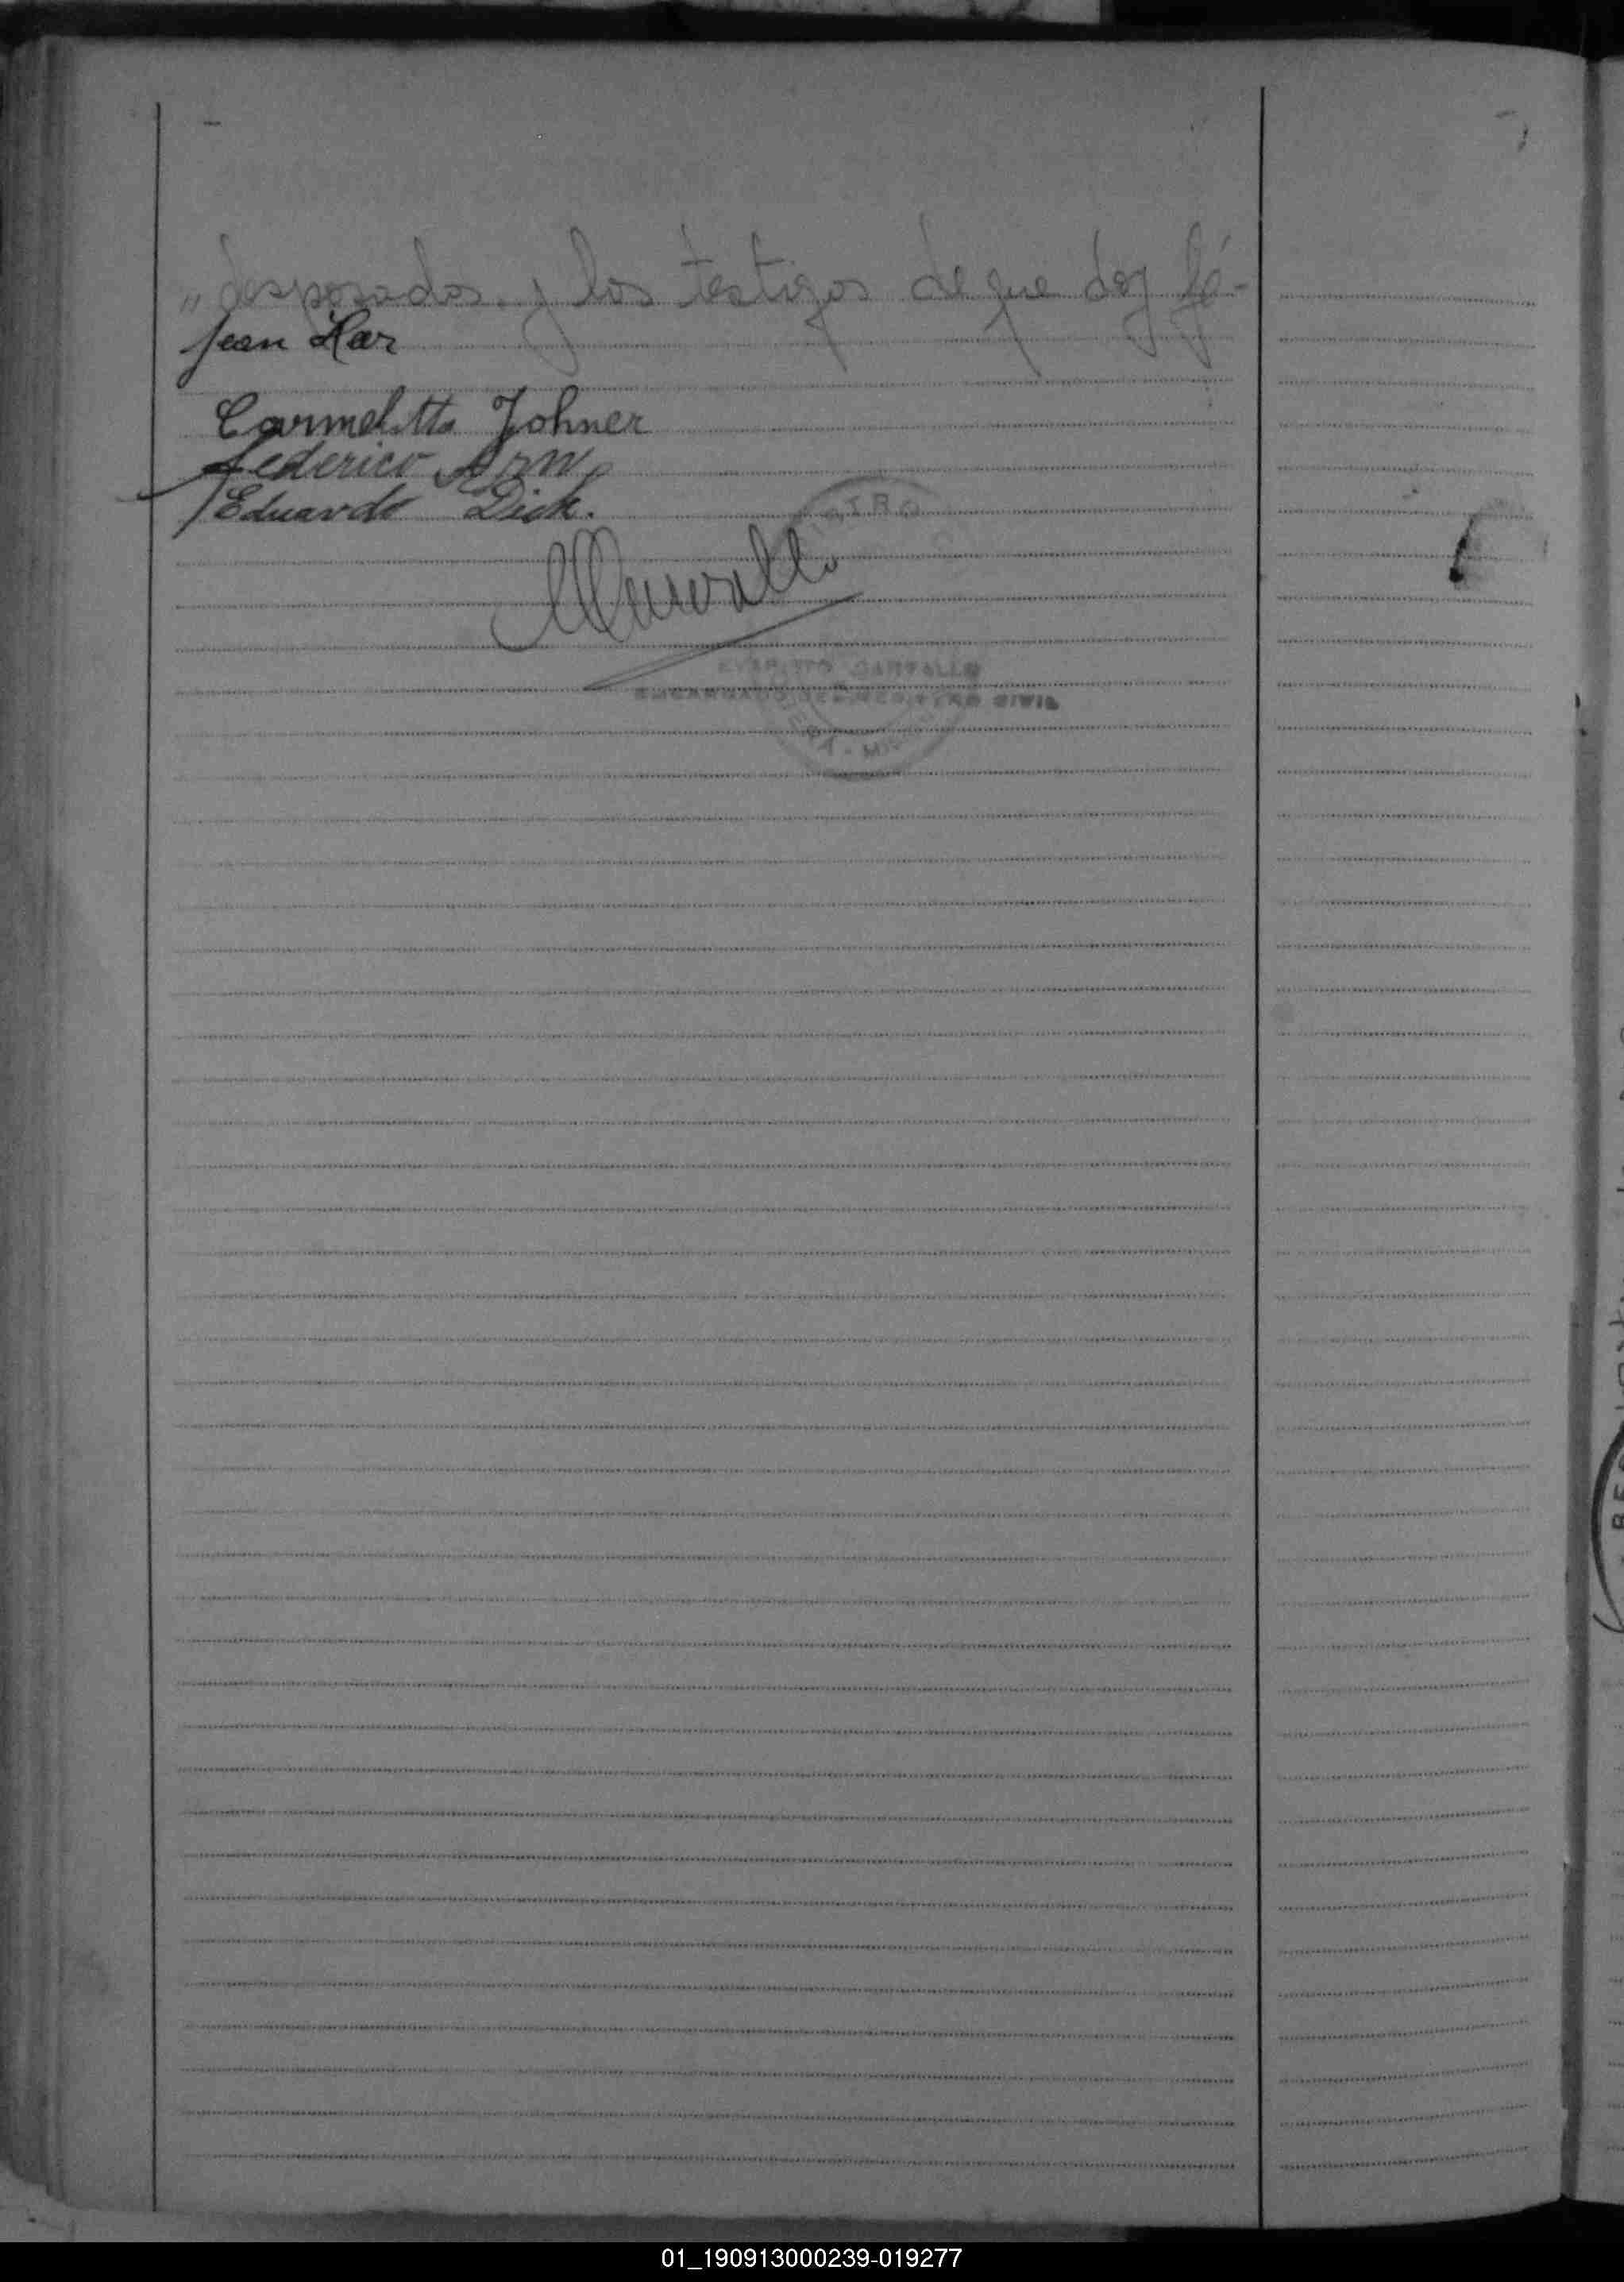 „ desposados y los testigos de que doy fé-
Jean Har
Carmelitta Johner
Federico Arn
Eduardo Dick.
ISTRO
CARVALLO
ENCARGADO DEL REGISTRO CIVIL
01_190913000239-019277